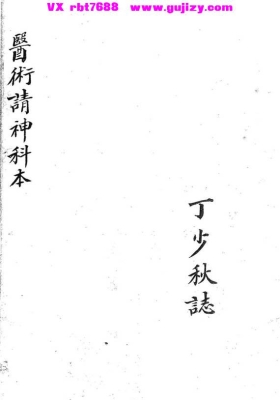 VX rbt7688 www.gujizy.com
醫術請神科本
丁少秋誌